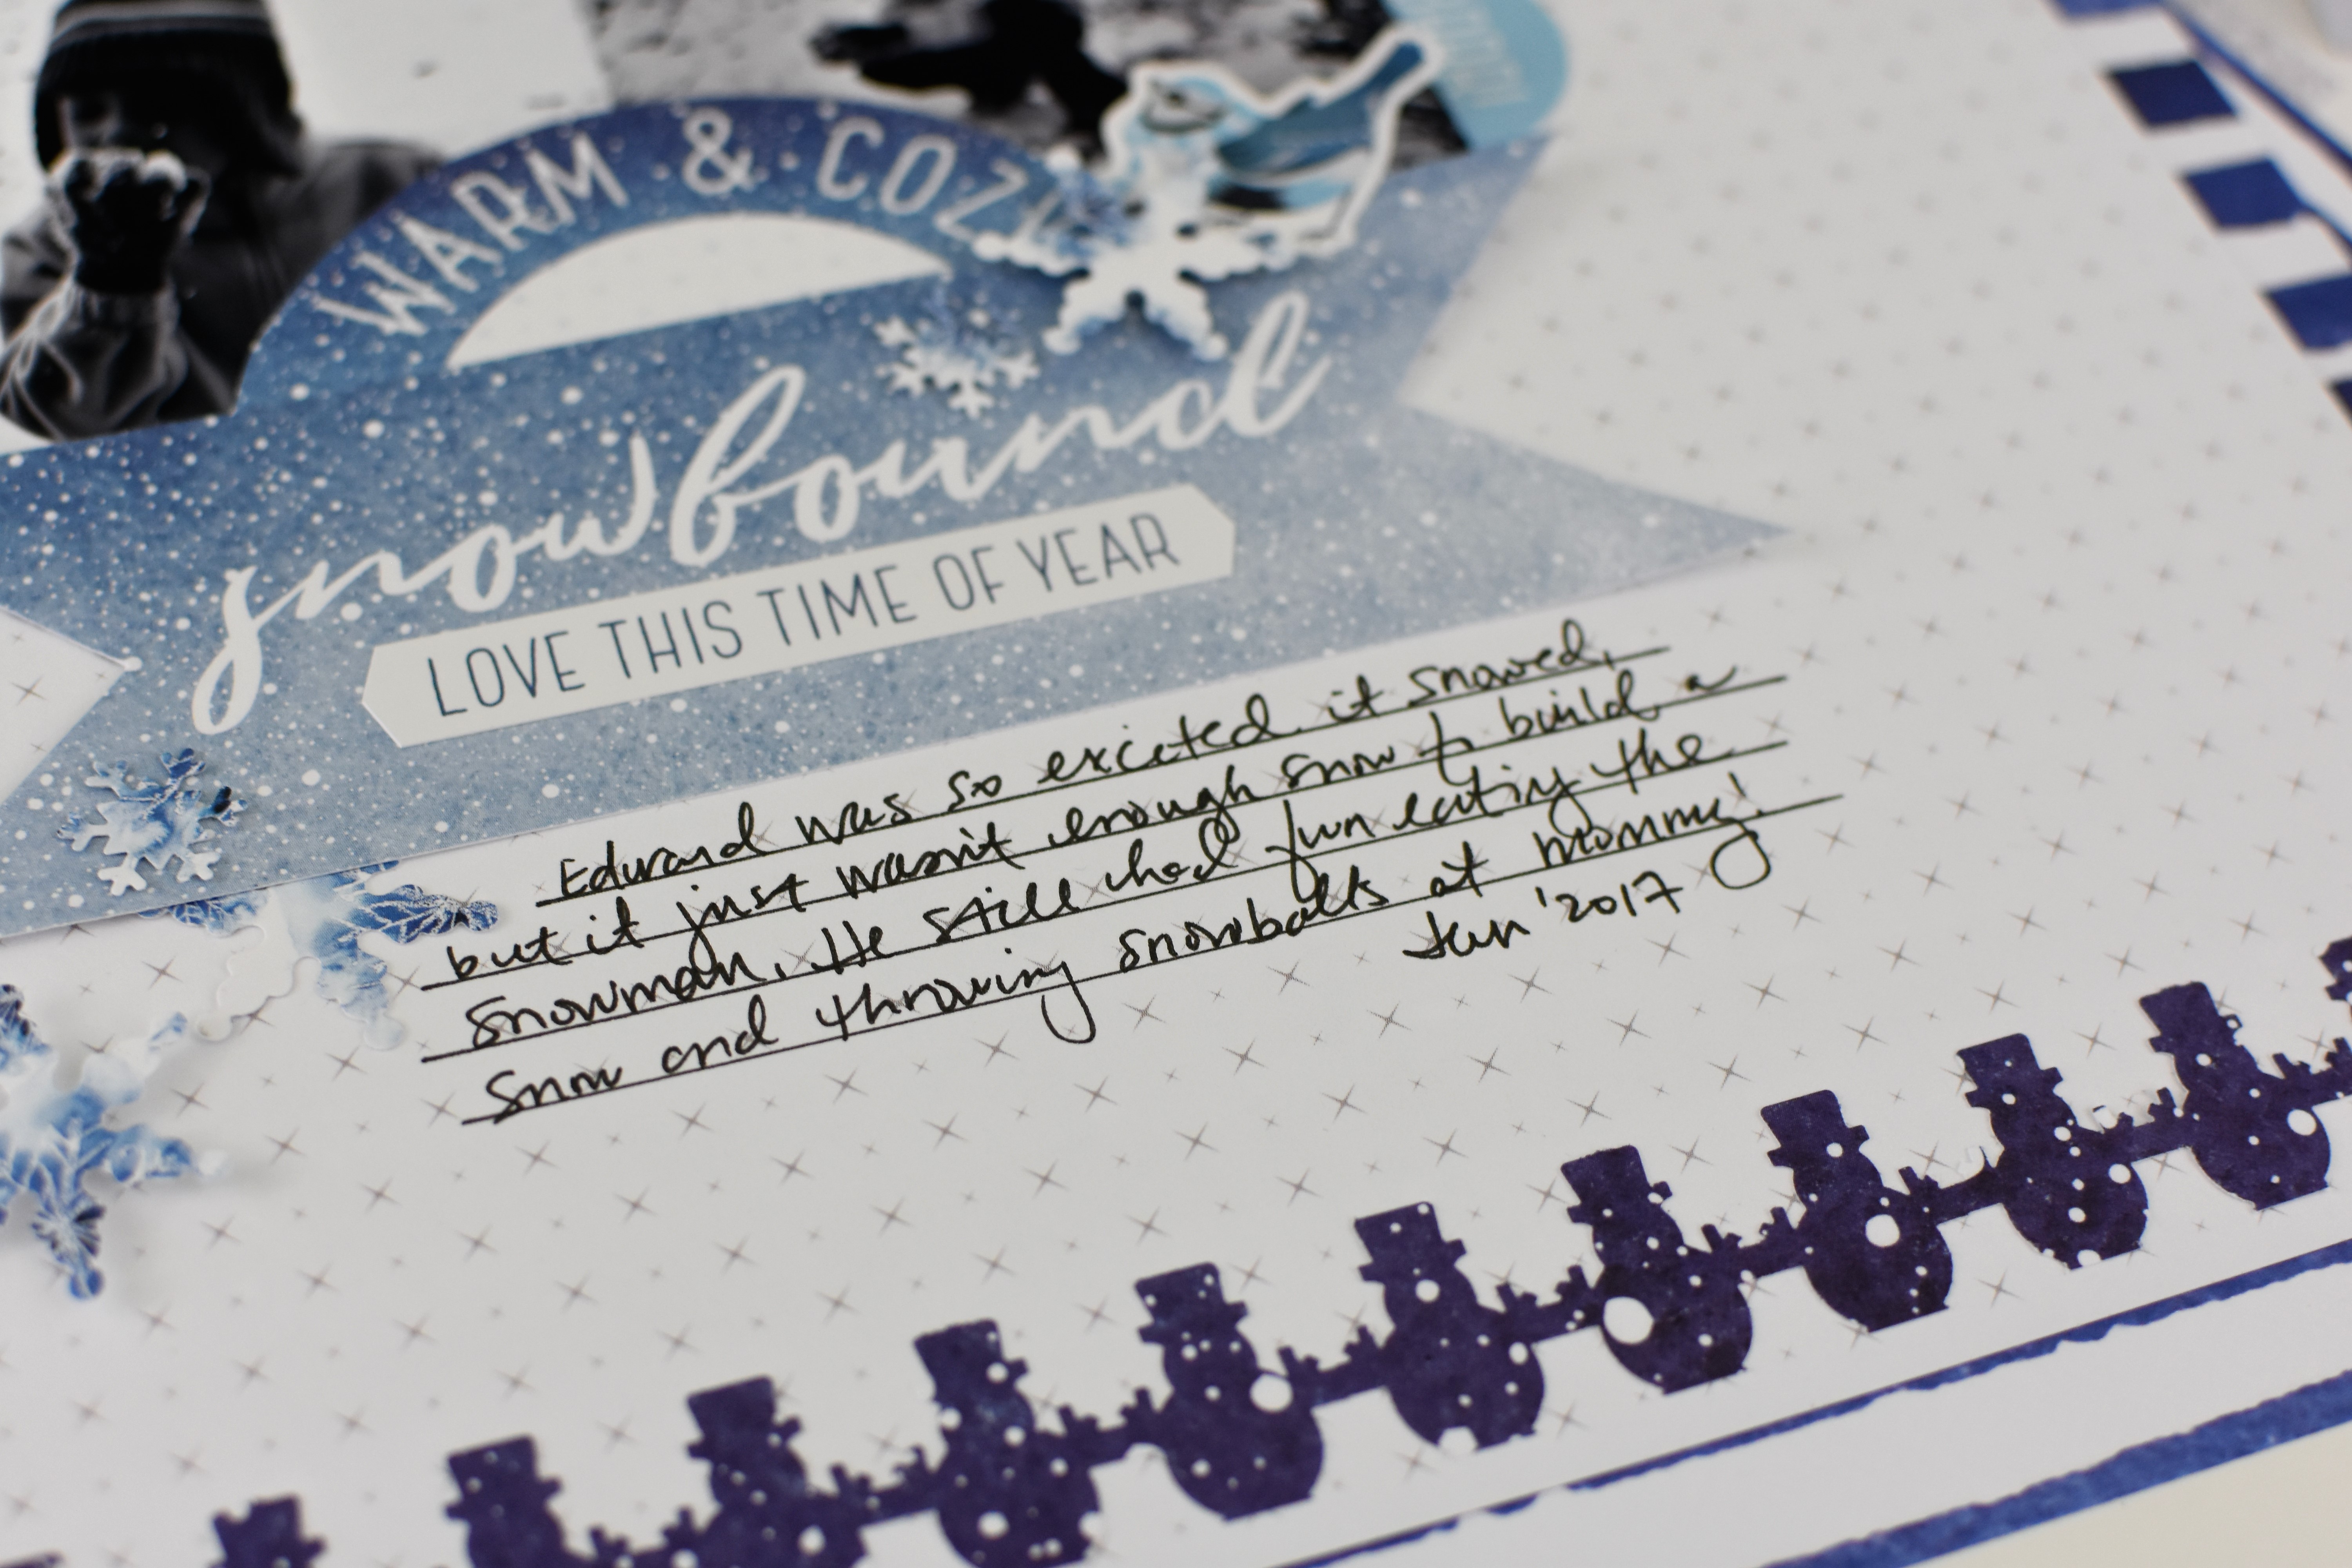 WARM & COZY
snowbound
LOVE THIS TIME OF YEAR
Edward was so excited it snowed,
but it just wasn't enough snow to build a
snowman. He still had fun eating the
snow and throwing snowballs at mommy!
Jan '2017